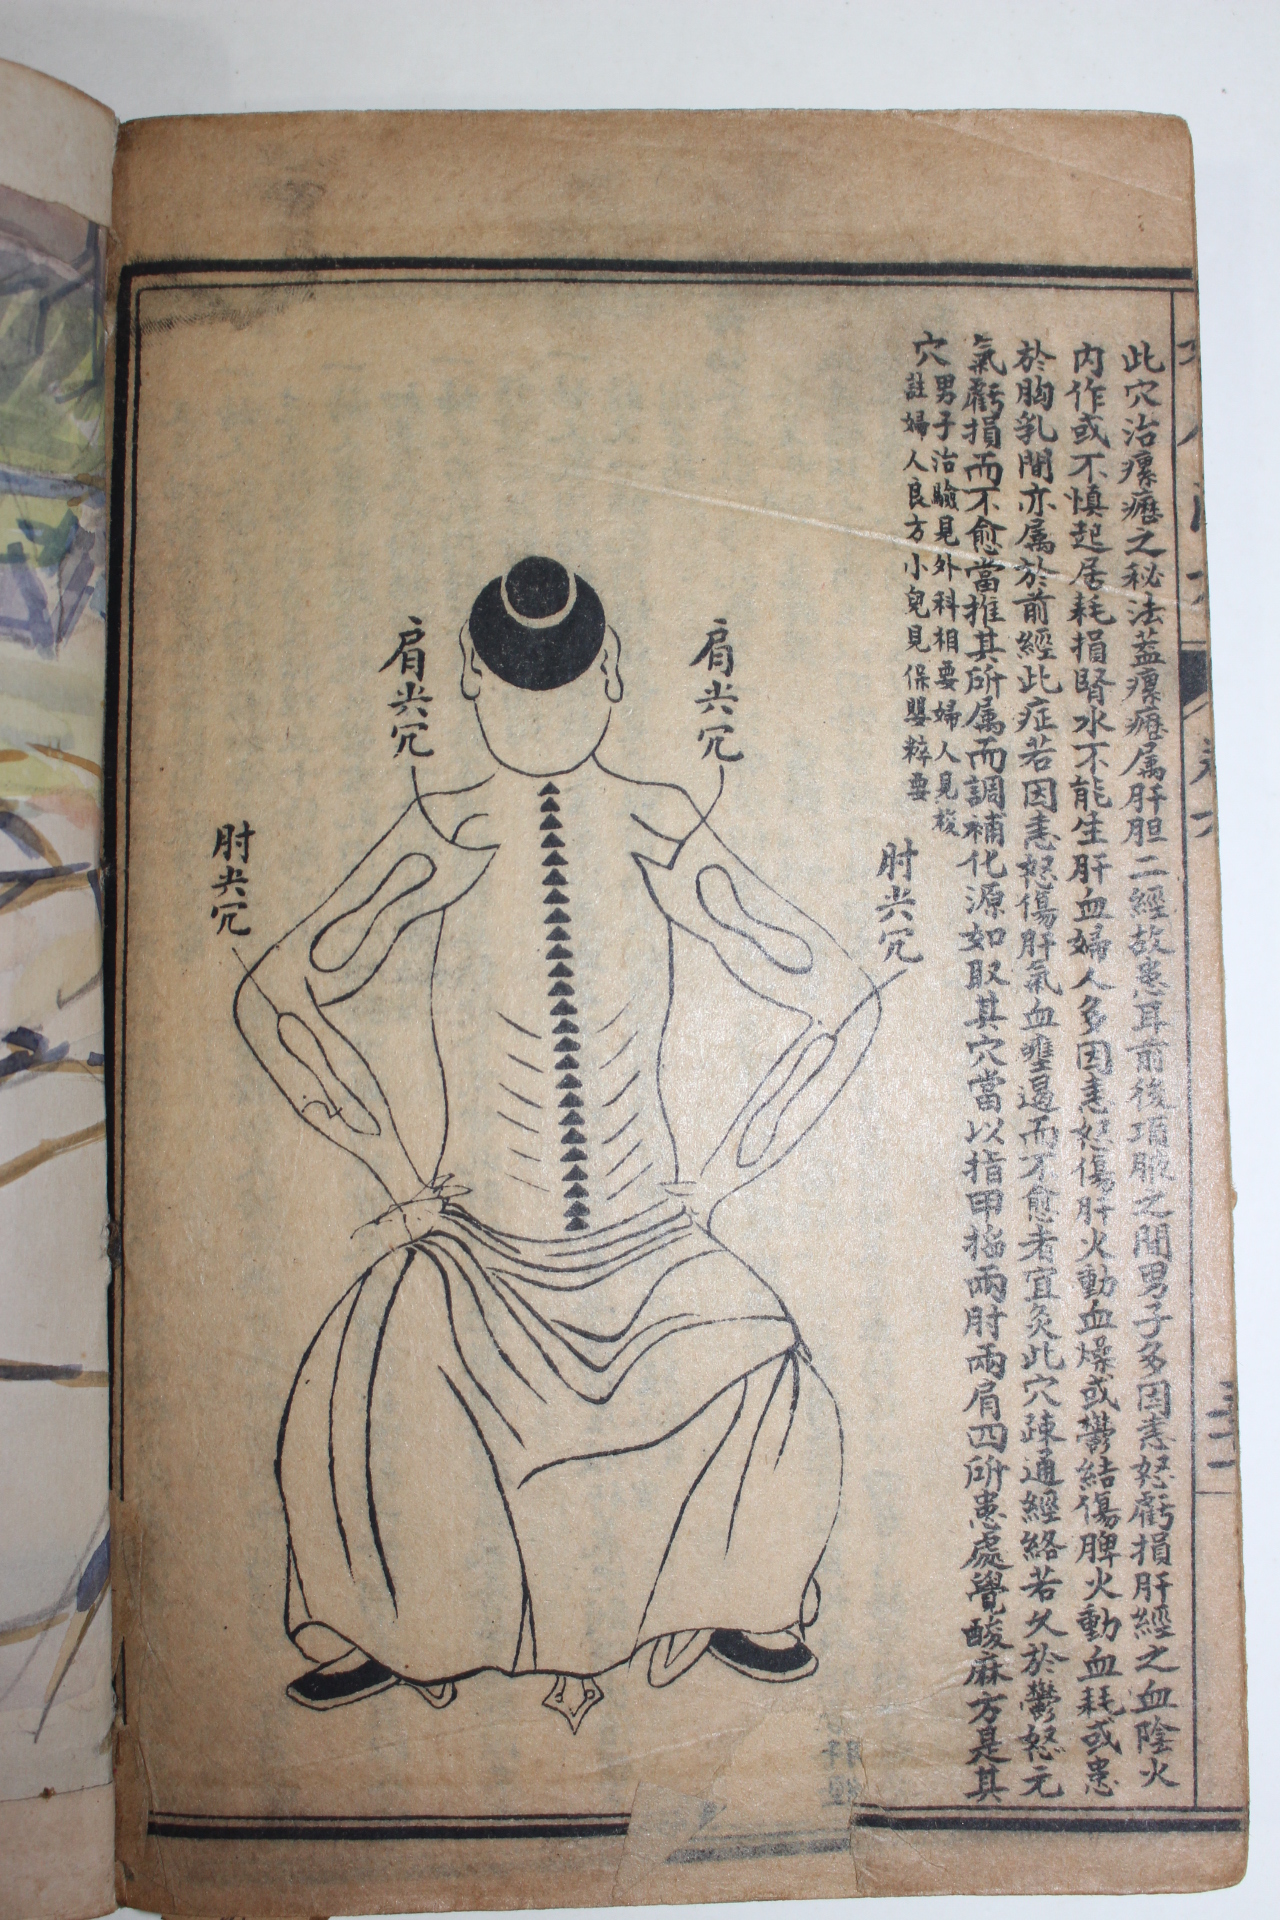 此穴治瘰癧之秘法蓋瘰癧属肝胆二經故患耳前後項腋之間男子多因恚怒虧損肝經之血陰火
内作或不慎起居耗損腎水不能生肝血婦人多因恚怒傷肝火動血燥或鬱結傷脾火動血耗或患
於胸乳間亦属於前經此症若因恚怒傷肝氣血壅遏而不愈者宜灸此穴疎通經絡若久於鬱怒元
氣虧損而不愈當推其所属而調補化源如取其穴當以指甲掐兩肘兩肩四所患處覺酸麻方是其
穴
男子治驗見外科相要婦人見校
註婦人良方小兒見保嬰粹要
肩尖冗
肩尖冗
肘尖冗
肘尖冗